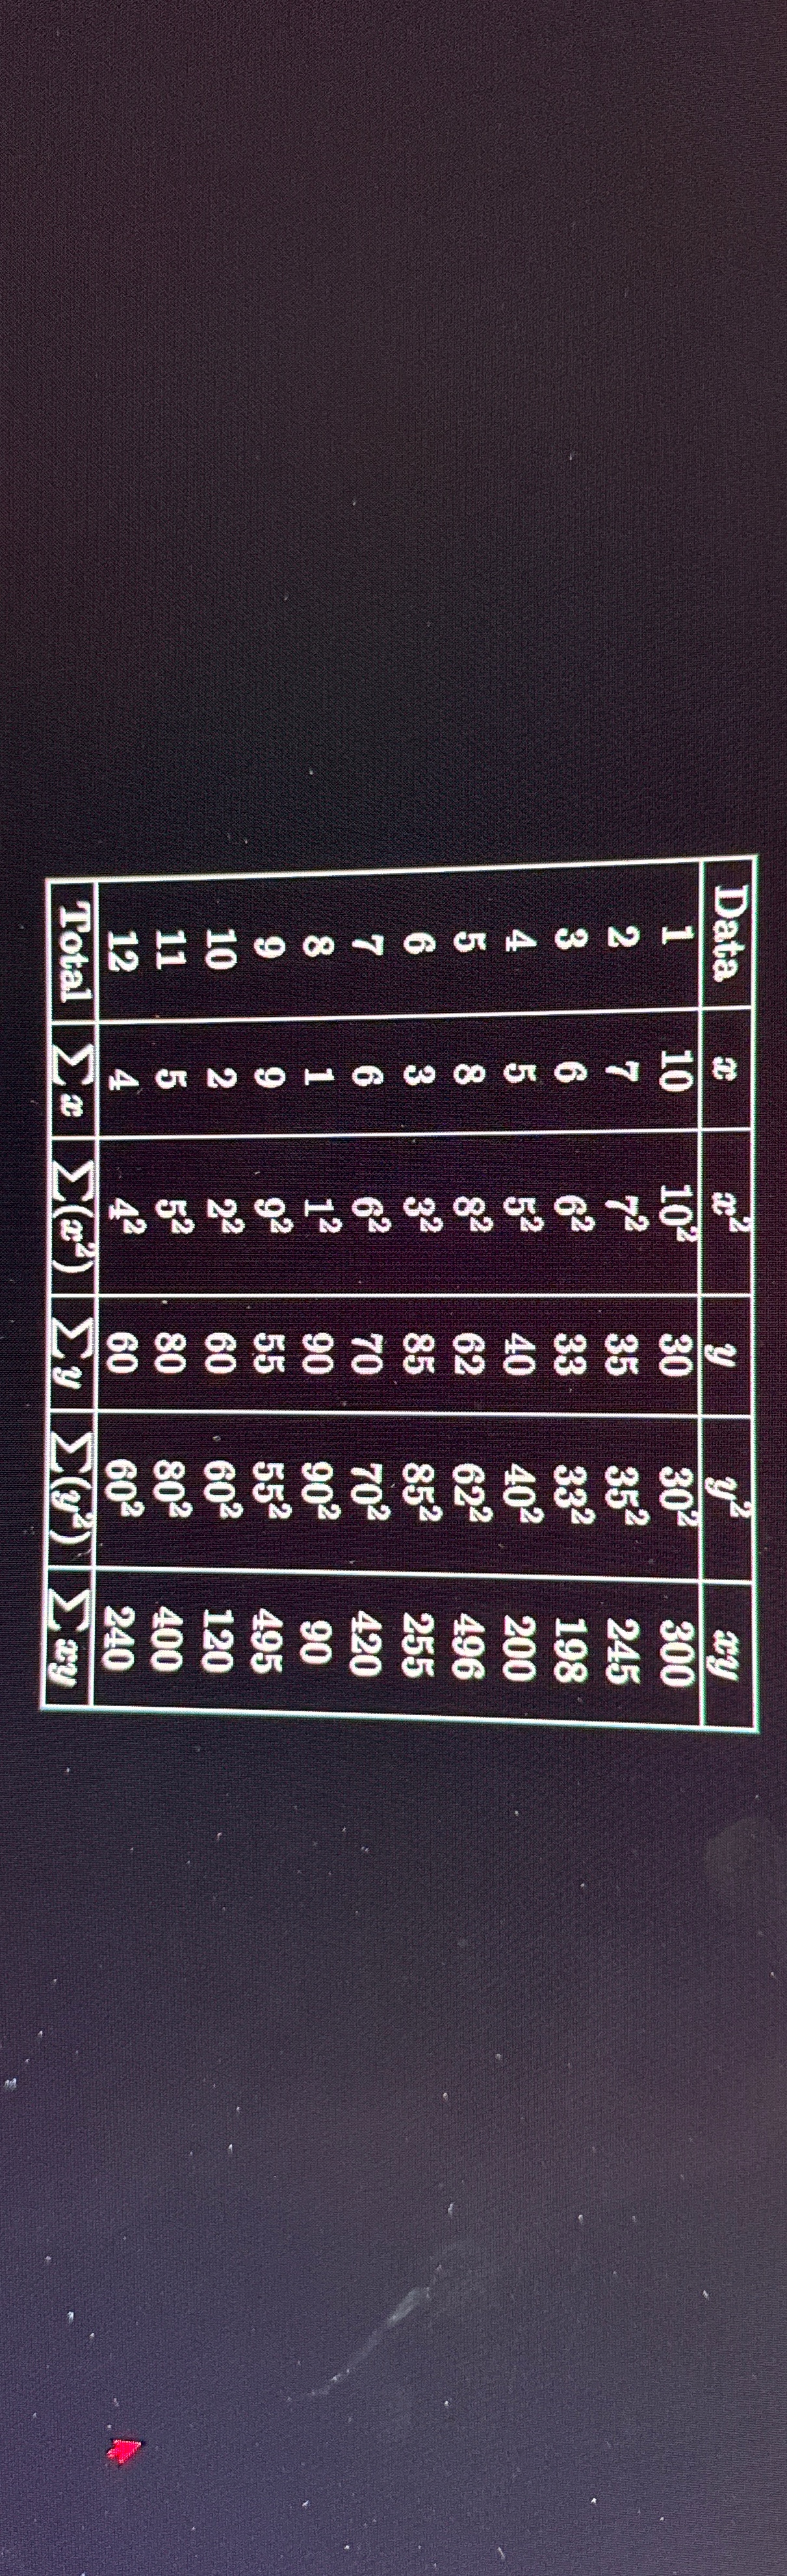 Data x x² y y² xy
1 10 10² 30 30² 300
2 7 7² 35 35² 245
3 6 6² 33 33² 198
4 5 5² 40 40² 200
5 8 8² 62 62² 496
6 3 3² 85 85² 255
7 6 6² 70 70² 420
8 1 1² 90 90² 90
9 9 9² 55 55² 495
10 2 2² 60 60² 120
11 5 5² 80 80² 400
12 4 4² 60 60² 240
Total ∑x ∑(x²) ∑y ∑(y²) ∑xy